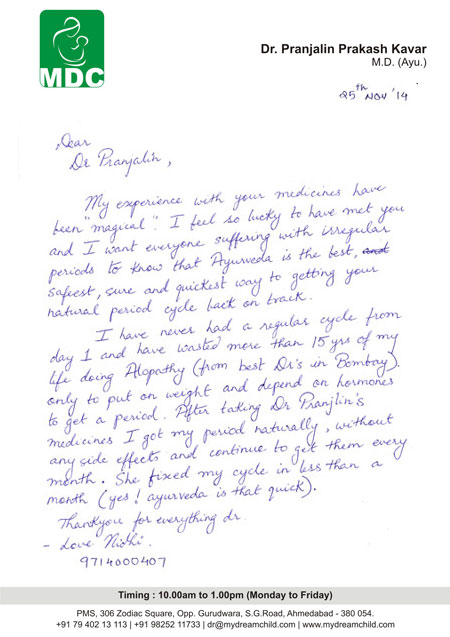 MDC
Dr. Pranjalin Prakash Kavar
M.D. (Ayu.)
25th Nov '14
Dear
Dr Pranjalin,
My experience with your medicines have
been "magical". I feel so lucky to have met you
and I want everyone suffering with irregular
periods to know that Ayurveda is the best, and
safeest, sure and quickest way to getting your
natural period cycle back on track.
I have never had a regular cycle from
day 1 and have wasted more than 15 yrs of my
life doing Alopathy (from best Dr's in Bombay).
only to put on weight and depend on hormones
to get a period. After taking Dr Pranjlin's
medicines I got my period naturally, without
any side effects and continue to get them every
month. She fixed my cycle in less than a
month (yes! ayurveda is that quick).
Thankyou for everything dr.
- Love Nidhi.
9714000407
Timing : 10.00am to 1.00pm (Monday to Friday)
PMS, 306 Zodiac Square, Opp. Gurudwara, S.G.Road, Ahmedabad - 380 054.
+91 79 402 13 113 | +91 98252 11733 | dr@mydreamchild.com | www.mydreamchild.com